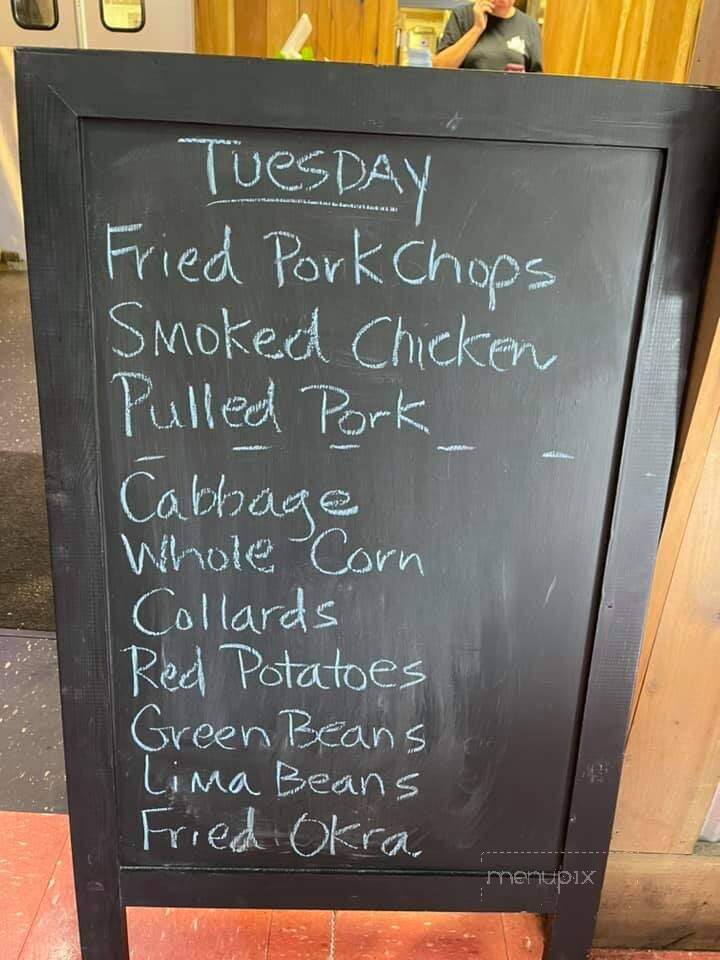 TUESDAY
Fried Pork Chops
Smoked Chicken
Pulled Pork
Cabbage
Whole Corn
Collards
Red Potatoes
Green Beans
Lima Beans
Fried Okra
menupix